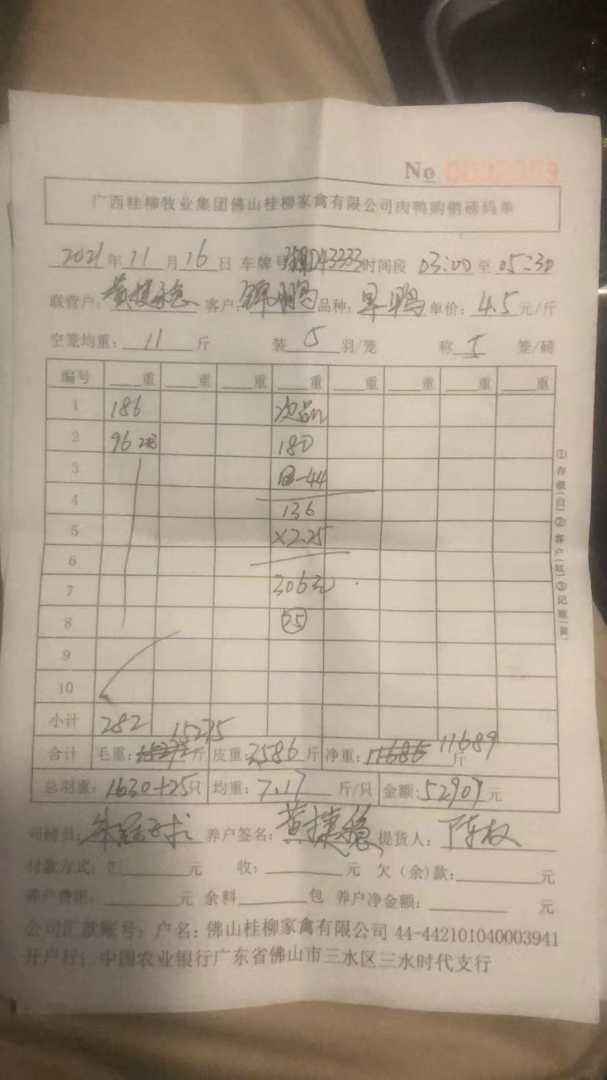 No
广西桂柳牧业集团佛山桂柳家禽有限公司肉鸭购销磅码单
2021年11月16日 车牌号 D43333 时间段 03:00 至 05:30
联营户: 黄捷稳 客户: 鹏 品种: 旱鸭 单价: 4.5 元/斤
空笼均重: 11 斤 装 5 羽/笼 称 5 签/磅
编号 重 重 重 重 重 重 重 重
1 186 次品
2 96 180
3 -44
4 136
5 ×2.25
6
7 306元
8 25
9
10
小计 282 15275
合计 毛重: 斤 皮重: 3586 斤 净重: 11686 11689 斤
总羽重: 1630+25只 均重: 7.17 斤/只 金额: 52907 元
司磅员: 养户签名: 黄捷稳 提货人: 陈权
付款方式: 元 收: 元 欠(余)款: 元
养户费用: 元 余料 包 养户净金额: 元
公司汇款账号: 户名: 佛山桂柳家禽有限公司 44-442101040003941
开户行: 中国农业银行广东省佛山市三水区三水时代支行
①存根(白)②客户(红)③记账(黄)